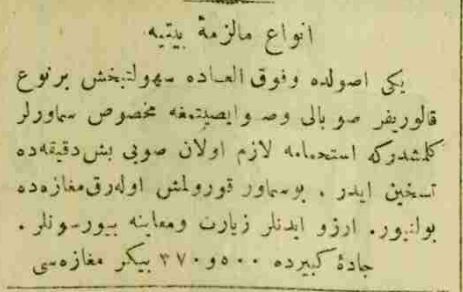 انواع مالزمهٔ بیتیه
یکی اصولده وفوق العاده سهولتبخش برنوع
قالوریفر صوبالی وصو ایصیتمغه مخصوص سماورلر
کلمشدرکه استحمامه لازم اولان صویی بش دقیقه‌ده
تسخین ایدر . بوسماور قورولمش اوله‌رق مغازه‌ده
بولنیور. ارزو ایدنلر زیارت ومعاینه بیورسونلر .
جادهٔ کبیرده ٥٠٠ و ٣٧٠ بیکر مغازه‌سی